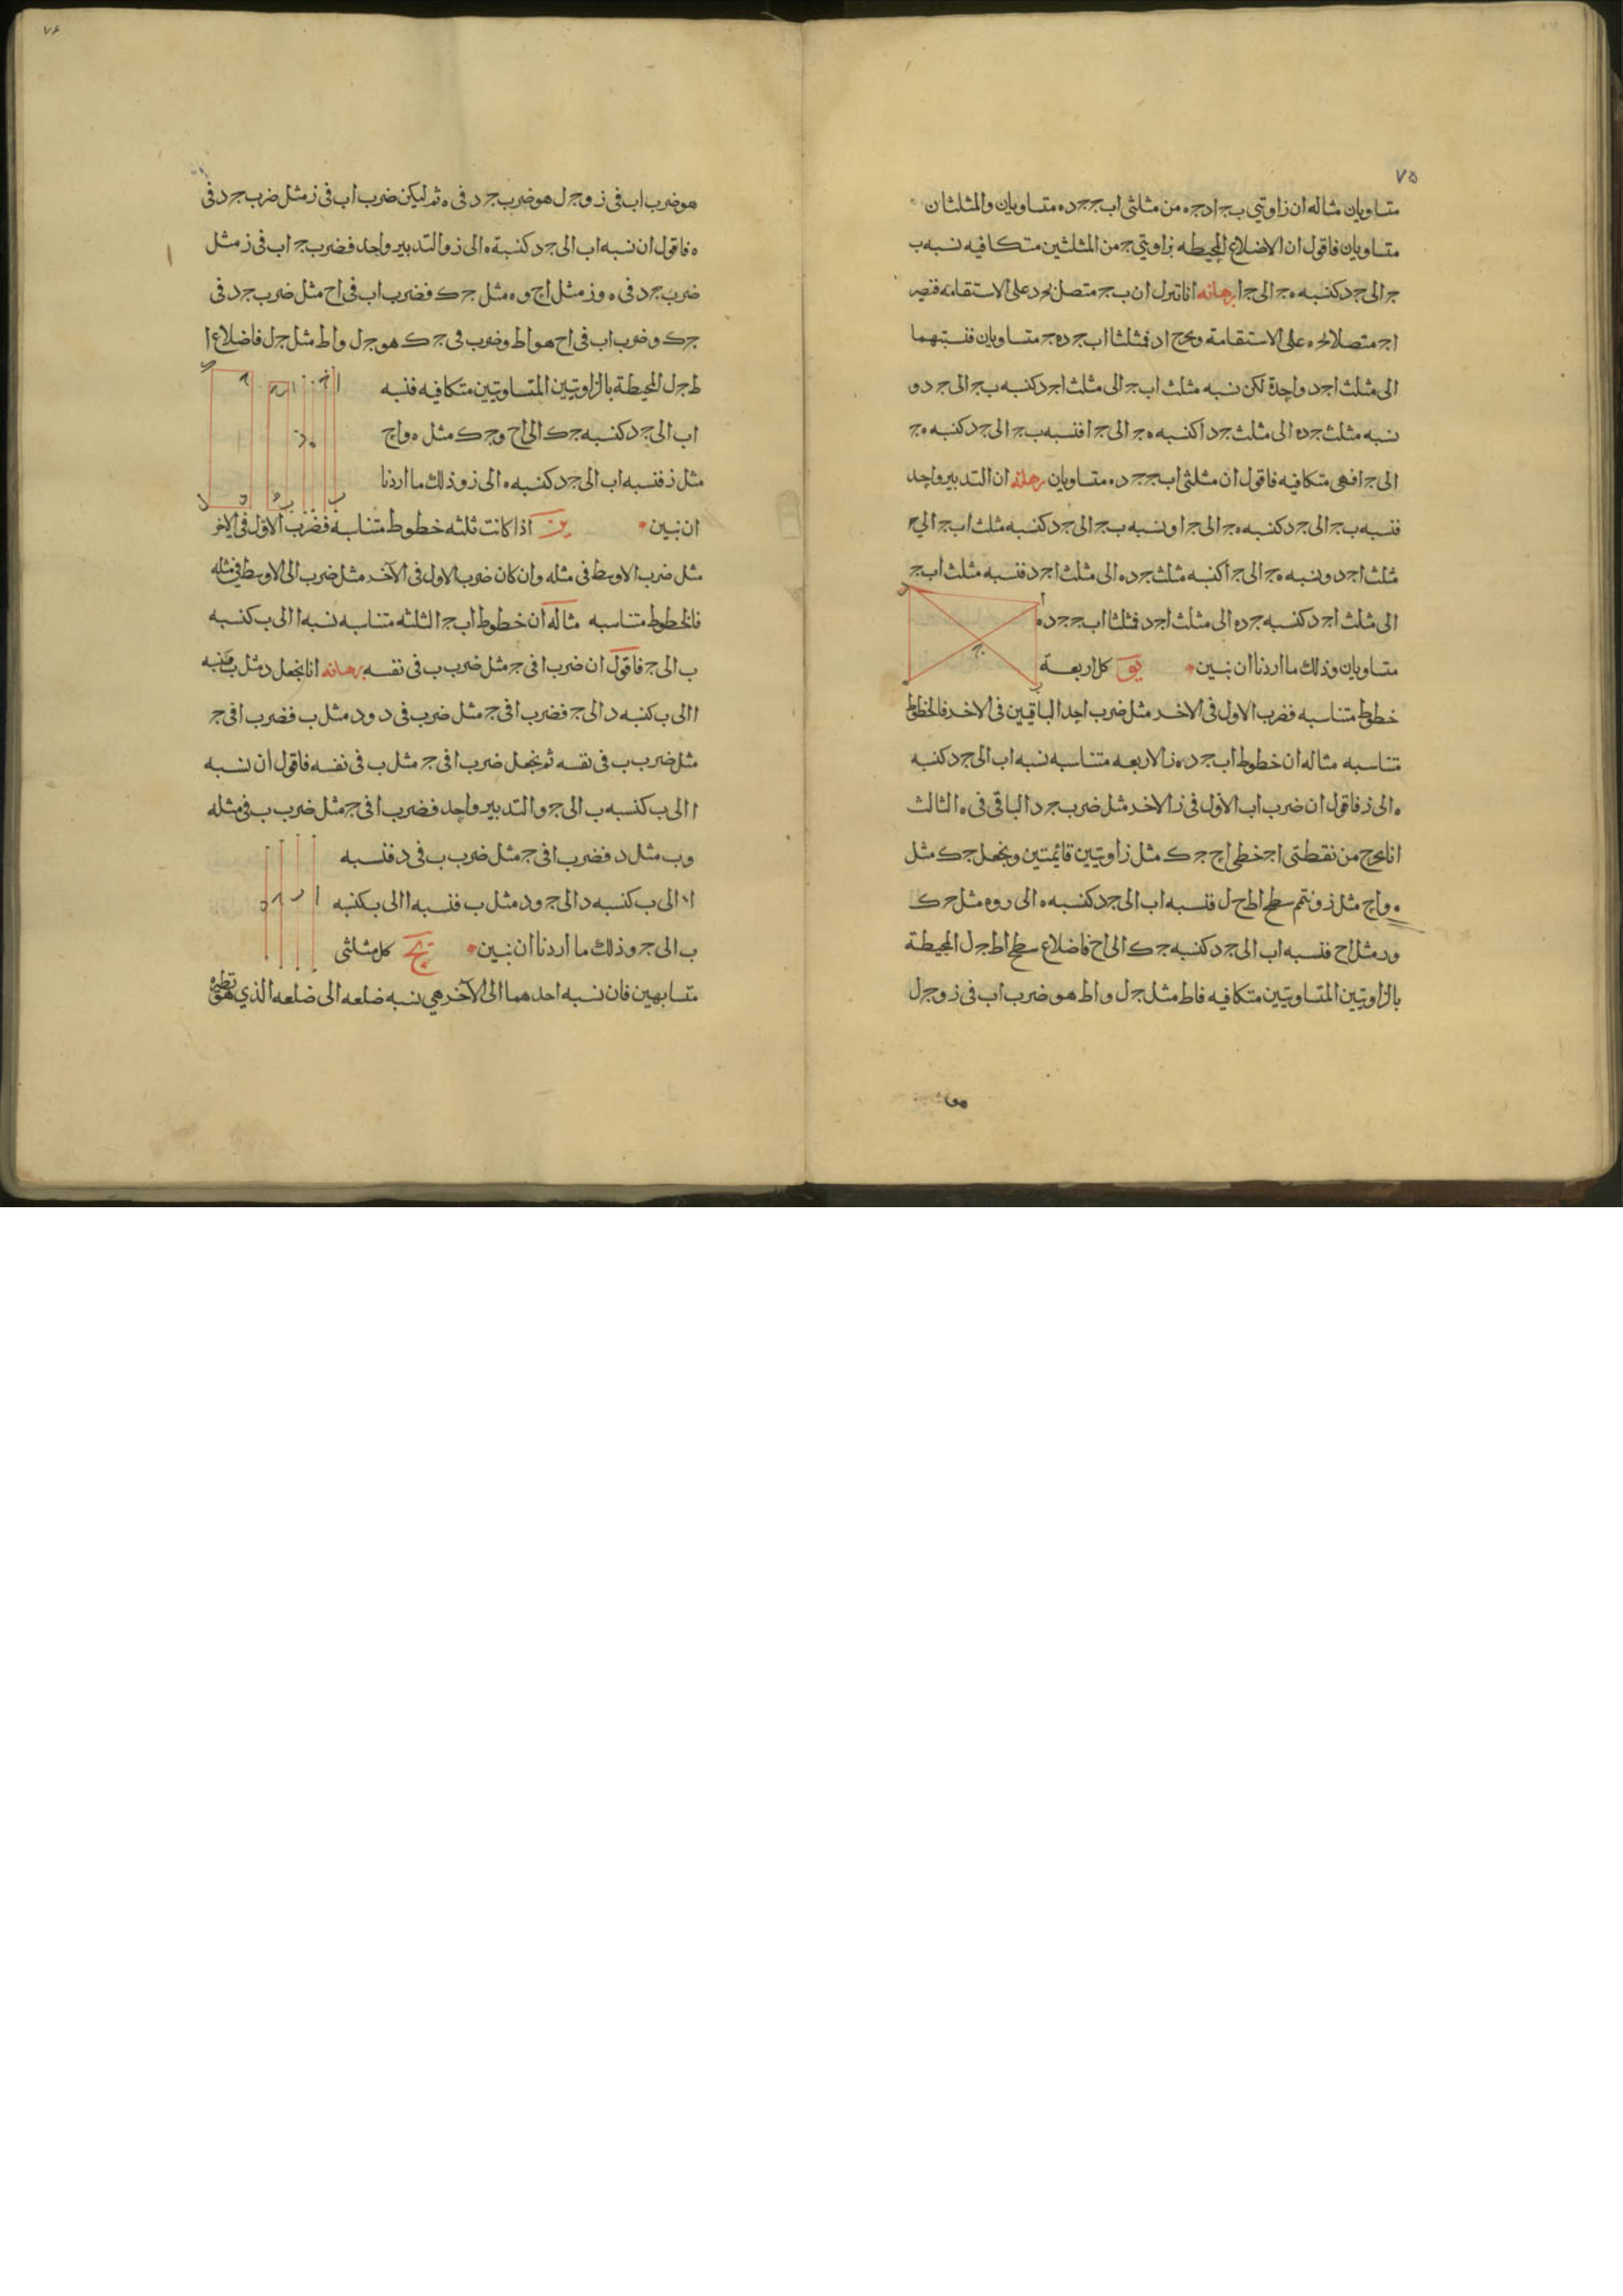 ٧٥
متساويان مثاله ان زاويتي ب ج ا د ج ه من مثلثي اب ج ج د ه متساويان والمثلثان
متساويان فاقول ان الاضلاع المحيطه بزاويتي ج من المثلثين متكافيه نسبه ب
ج الى ج د كنسبه ه ج الى ج ا برهانه انا نترل ان ب ج متصل بج د على الاستقامه فيصير
ا ج متصلا بج ه على الاستقامة ونخرج اد فمثلثا اب ج د ه ج متساويان فنسبتهما
الى مثلث ا ج د واحدة لكن نسبه مثلث اب ج الى مثلث ا ج د كنسبه ب ج الى ج د و
نسبه مثلث ج د ه الى مثلث ج د ا كنسبه ه ج الى ج ا فنسبه ب ج الى ج د كنسبه ه ج
الى ج ا فهى متكافيه فاقول ان مثلثي اب ج ج د ه متساويان برهانه ان التدبير واحد
فنسبه ب ج الى ج د كنسبه ه ج الى ج ا ونسبه ب ج الى ج د كنسبه مثلث اب ج الى
مثلث ا ج د ونسبه ه ج الى ج ا كنسبه مثلث ج د ه الى مثلث ا ج د فنسبه مثلث اب ج
الى مثلث ا ج د كنسبه ج د ه الى مثلث ا ج د فمثلثا اب ج ج د ه
متساويان وذلك ما اردنا ان نبين يو كل اربعة
خطوط متناسبه فضرب الاول فى الاخر مثل ضرب احد الباقيين فى الاخر فالخطوط
متناسبه مثاله ان خطوط اب ج د ه ز الاربعه متناسبه نسبه اب الى ج د كنسبه
ه الى ز فاقول ان ضرب اب الاول فى ز الاخر مثل ضرب ج د الباقى فى ه الثالث
انا نخرج من نقطتى ا ج خطي اح ج ك مثل زاويتين قائمتين ونجعل ج ك مثل
ه واح مثل ز ونتم سطح اط ج ل فنسبه اب الى ج د كنسبه ه الى ز و ه مثل ج ك
و ز مثل اح فنسبه اب الى ج د كنسبه ج ك الى اح فاضلاع سطح اط ج ل المحيطة
بالزاويتين المتساويتين متكافيه فاط مثل ج ل و اط هو ضرب اب فى ز و ج ل
٧٦
هو ضرب اب فى ز و ج ل هو ضرب ج د فى ه ثم ليكن ضرب اب فى ز مثل ضرب ج د فى
ه فاقول ان نسبه اب الى ج د كنسبة ه الى ز والتدبير واحد فضرب ج اب فى ز مثل
ضرب ج د فى ه و ز مثل اح و ه مثل ج ك فضرب اب فى اح مثل ضرب ج د فى
ج ك وضرب اب فى اح هو اط وضرب فى ج ك هو ج ل واط مثل ج ل فاضلاع ا
ط ج ل المحيطة بالزاويتين المتساويتين متكافيه فنسبه
اب الى ج د كنسبه ج ك الى اح و ج ك مثل ه واح
مثل ز فنسبه اب الى ج د كنسبه ه الى ز وذلك ما اردنا
ان نبين يز اذا كانت ثلثه خطوط متناسبة فضرب الاول فى الاخر
مثل ضرب الاوسط فى مثله وان كان ضرب الاول فى الآخر مثل ضرب الى الاوسط فى مثله
فالخطوط متناسبه مثاله ان خطوط اب ج الثلثه متناسبه نسبه ا الى ب كنسبه
ب الى ج فاقول ان ضرب ا فى ج مثل ضرب ب فى نفسه برهانه انا نجعل د مثل ب فنسبه
ا الى ب كنسبه د الى ج فضرب ا فى ج مثل ضرب ب فى د و د مثل ب فضرب ا فى ج
مثل ضرب ب فى نفسه ثم نجعل ضرب ا فى ج مثل ب فى نفسه فاقول ان نسبه
ا الى ب كنسبه ب الى ج والتدبير واحد فضرب ا فى ج مثل ضرب ب فى مثله
وب مثل د فضرب ا فى ج مثل ضرب ب فى د فنسبه
ا الى ب كنسبه د الى ج و د مثل ب فنسبه ا الى ب كنسبه
ب الى ج وذلك ما اردنا ان نبين يح كل مثلثى
متسابهين فان نسبه احدهما الى الآخر هي نسبه ضلعه الى ضلعه الذي هو نظيره